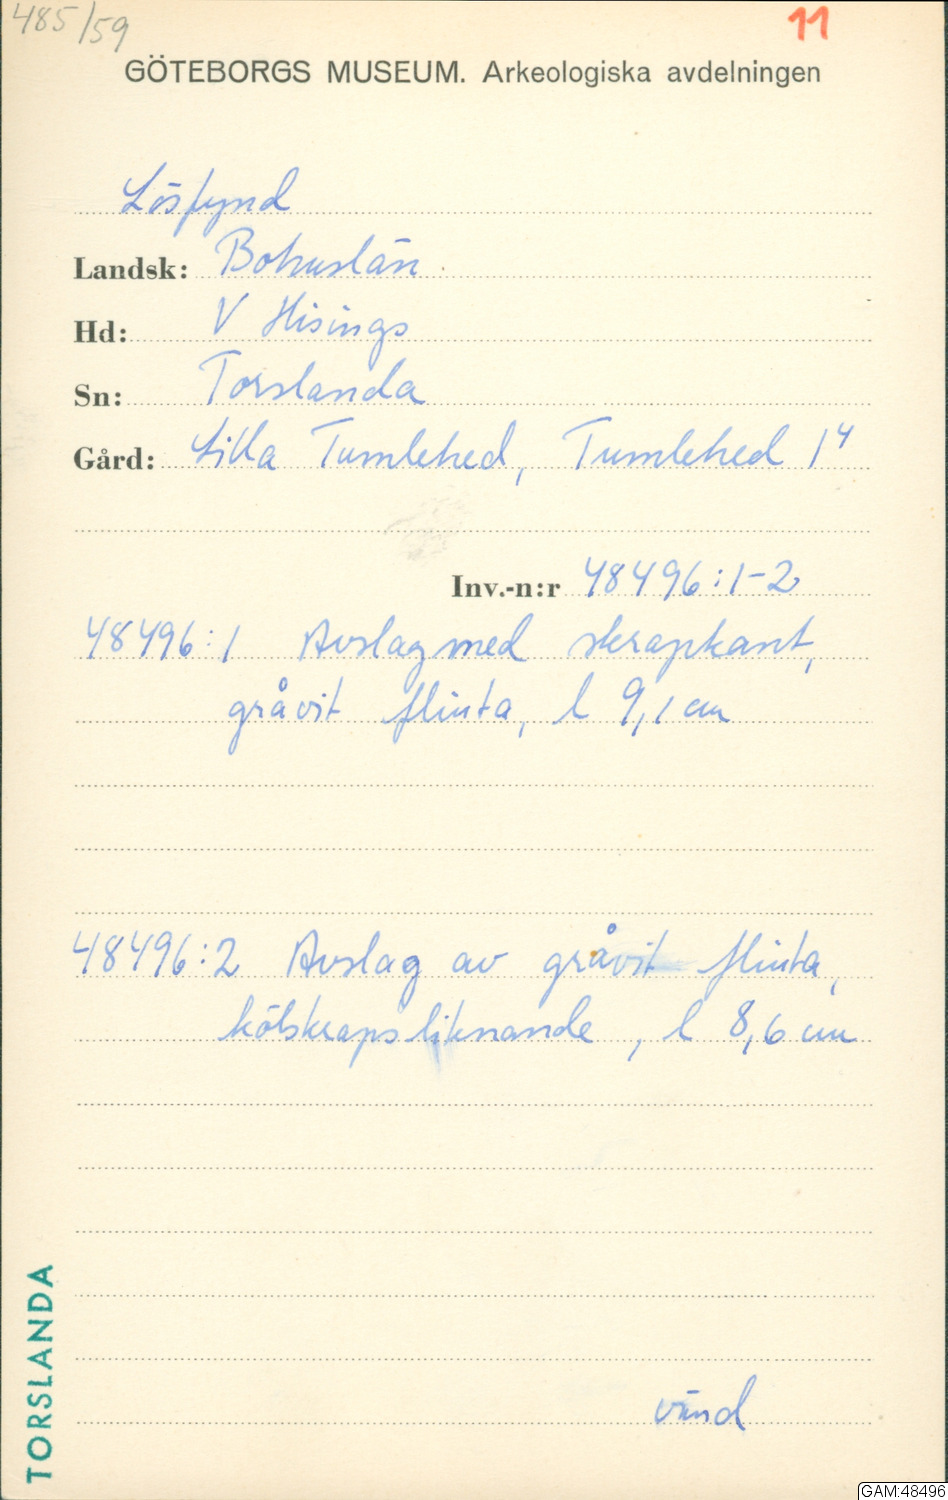 485/59
11
GÖTEBORGS MUSEUM. Arkeologiska avdelningen
Lösfynd
Landsk: Bohuslän
Hd: V Hisings
Sn: Torslanda
Gård: Lilla Tumlehed, Tumlehed 1⁴
Inv.-n:r 48496:1-2
48496:1 Avslag med skrapkant,
gråvit flinta, l 9,1 cm
48496:2 Avslag av gråvit flinta,
kölskrapsliknande, l 8,6 cm
vänd
TORSLANDA
GAM:48496